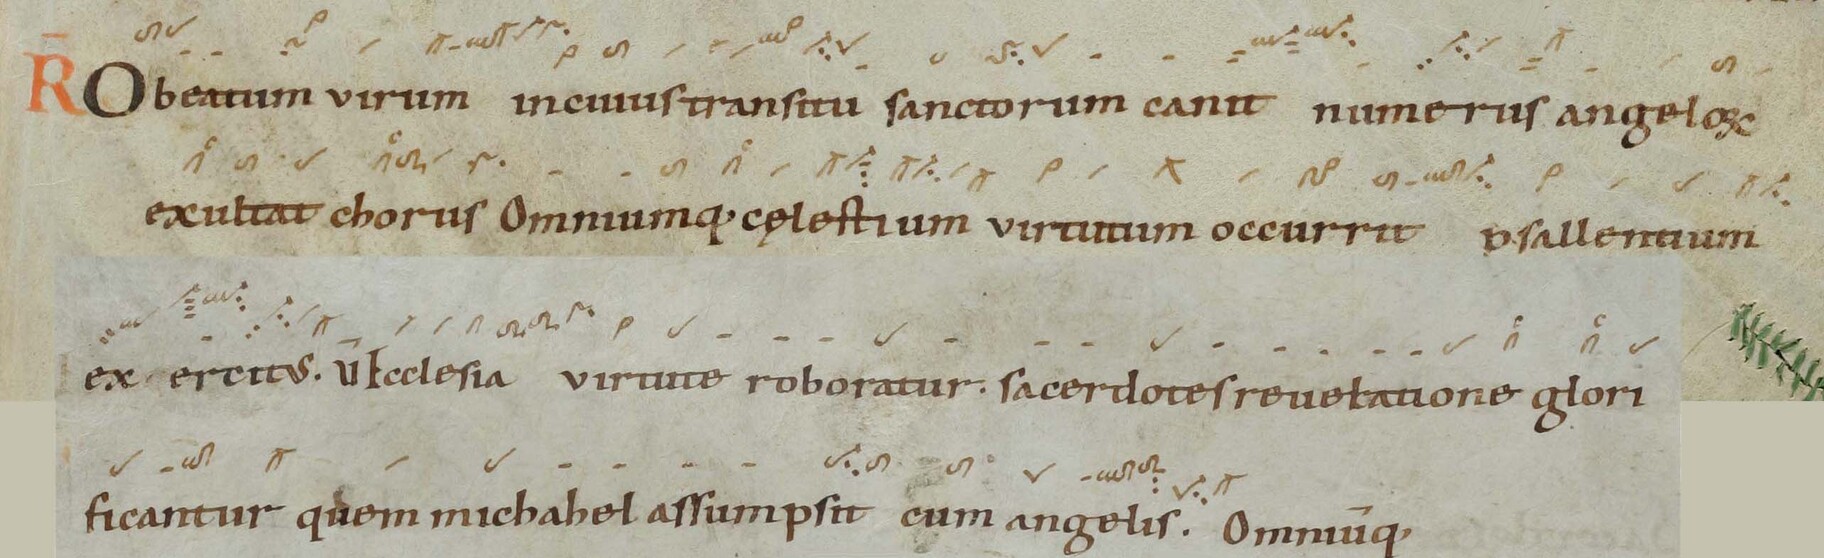 R̄ O beatum virum incuius transitu sanctorum canit numerus angeloꝝ
exultat chorus Omniumq; cęlestium virtutum occurrit psallentium
exercitus. V̄ Ecclesia virtute roboratur. sacerdotes reuelatione glori
ficantur quem michahel assumpsit cum angelis. Omniūq;